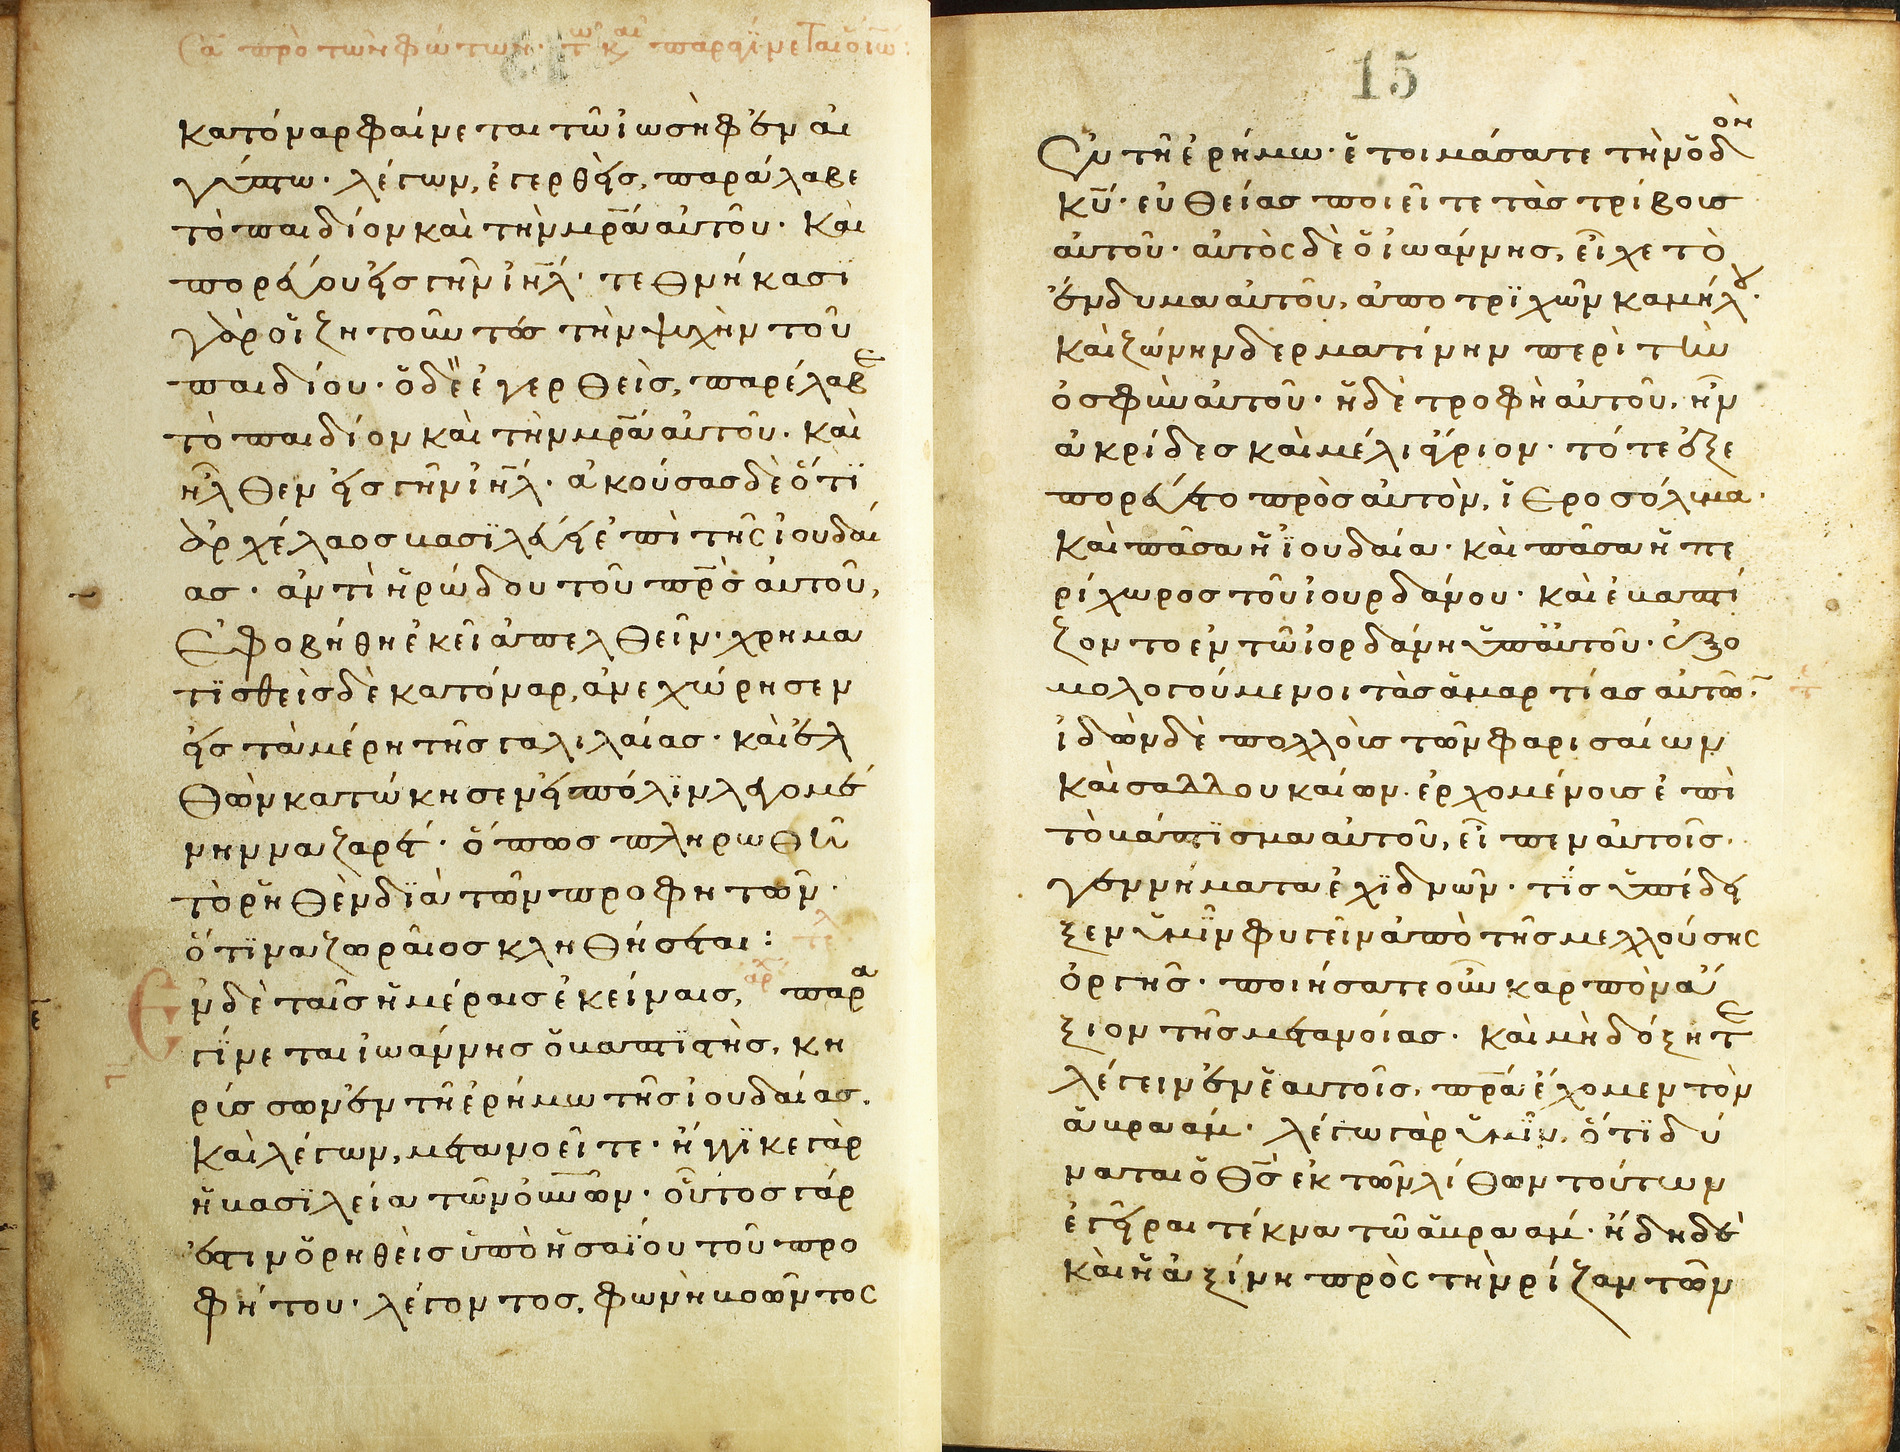 Σα πρὸ τῶν φώτων. τω κ αι παραγίνεται ὁ ιω:
κατόναρ φαίνεται τῶ ἰωσὴφ ἐν αἰ
γύπτω· λέγων, ἐγερθεὶς, παράλαβε
τὸ παιδίον καὶ τὴν μρ̅α αὐτοῦ· Καὶ
πορεύου εἰς γῆν ἰη̅λ· τεθνήκασϊ
γὰρ οἱ ζητοῦντες τὴν ψυχὴν τοῦ
παιδίου· ὁ δὲ ἐγερθεὶς, παρέλαβε
τὸ παιδίον καὶ τὴν μρ̅α αὐτοῦ. καὶ
ἦλθεν εἰς γῆν ἰη̅λ· ἀκούσας δὲ ὅτϊ
ἀρχέλαος βασϊλεύει ἐπὶ τῆς ἰουδαί
ας· ἀντὶ ἡρώδου τοῦ πρ̅ς αὐτοῦ,
ἐφοβήθη ἐκεῖ ἀπελθεῖν· χρημα
τϊσθεὶς δὲ κατόναρ, ἀνεχώρησεν
εἰς τὰ μέρη τῆς γαλιλαίας· καὶ ἐλ
θὼν κατώκησεν εἰς πόλϊν λεγομέ
νην ναζαρέτ· ὅπως πληρωθῆ
τὸ ρηθὲν δϊὰ τῶν προφητῶν·
ὅτϊ ναζωραῖος κληθήσεται: τελ
Ἐν δὲ ταῖς ἡμέραις ἐκείναις, αρχ παρα
γϊνεται ἰωάννης ὁ βαπτϊστὴς, κη
ρύσσων ἐν τῆ ἐρήμω τῆς ἰουδαίας.
καὶ λέγων, μετανοεῖτε· ἤγγϊκε γὰρ
ἡ βασϊλεία τῶν οὐ̅νῶν· οὗτος γάρ
ἐστιν ὁ ρηθεὶς ὑπὸ ἡσαΐου τοῦ προ
φήτου· λέγοντος, φωνὴ βοῶντος
15
Ἐν τῆ ἐρήμω· ἑτοιμάσατε τὴν ὁδὸν
κυ̅· εὐθείας ποιεῖτε τὰς τρίβους
αὐτοῦ· αὐτὸς δὲ ὁ ἰωάννης, εἶχε τὸ
ἔνδυμα αὐτοῦ, ἀπο τρϊχῶν καμήλου·
καὶ ζώνην δερματίνην περὶ τὴν
ὀσφὺν αὐτοῦ· ἡ δὲ τροφὴ αὐτοῦ, ἦν
ἀκρίδες καὶ μέλι ἄγριον· τότε ἐξε
πορεύετο πρὸς αὐτὸν, ἱεροσόλυμα·
καὶ πᾶσα ἡ ϊουδαία· καὶ πᾶσα ἡ πε
ρίχωρος τοῦ ἰουρδάνου· καὶ ἐβαπτί
ζοντο ἐν τῶ ἰορδάνη ὑπ' αὐτοῦ· ἐξο
μολογούμενοι τὰς ἁμαρτίας αὐτῶ̅·
ἰδὼν δὲ πολλοὺς τῶν φαρισαίων
καὶ σαλλουκαίων. ἐρχομένους ἐπὶ
τὸ βάπτϊσμα αὐτοῦ, εἶπεν αὐτοῖς.
γεννήματα ἐχϊδνῶν· τίς ὑπέδει
ξεν ὑμῖν φυγεῖν ἀπὸ τῆς μελλούσης
ὀργῆς· ποιήσατε οὖν καρπὸν ἄ
ξιον τῆς μετανοίας. καὶ μὴ δόξητε
λέγειν ἐν ἑαυτοῖς, πρ̅α ἔχομεν τὸν
ἀβραάμ· λέγω γὰρ ὑμῖν, ὅτϊ δύ
ναται ὁ θς̅ ἐκ τῶν λίθων τούτων
ἐγεῖραι τέκνα τῶ ἀβραάμ· ἤδη δὲ
καὶ ἡ ἀξίνη πρὸς τὴν ρίζαν τῶν